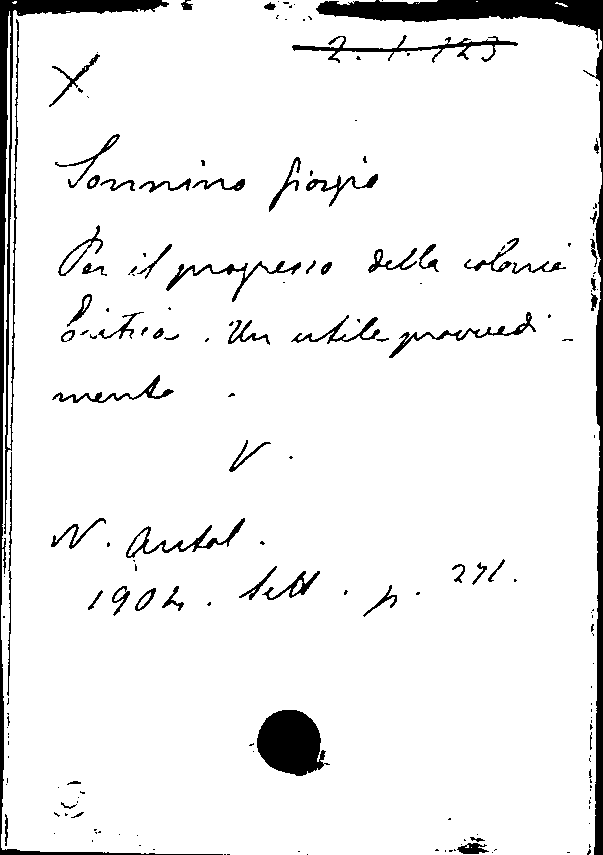 2. 1. 123
X
Sonnino Giorgio
Per il progresso della colonia
Eritrea. Un utile provvedi-
mento.
V.
N. Antol.
1904. Sett. p. 271.